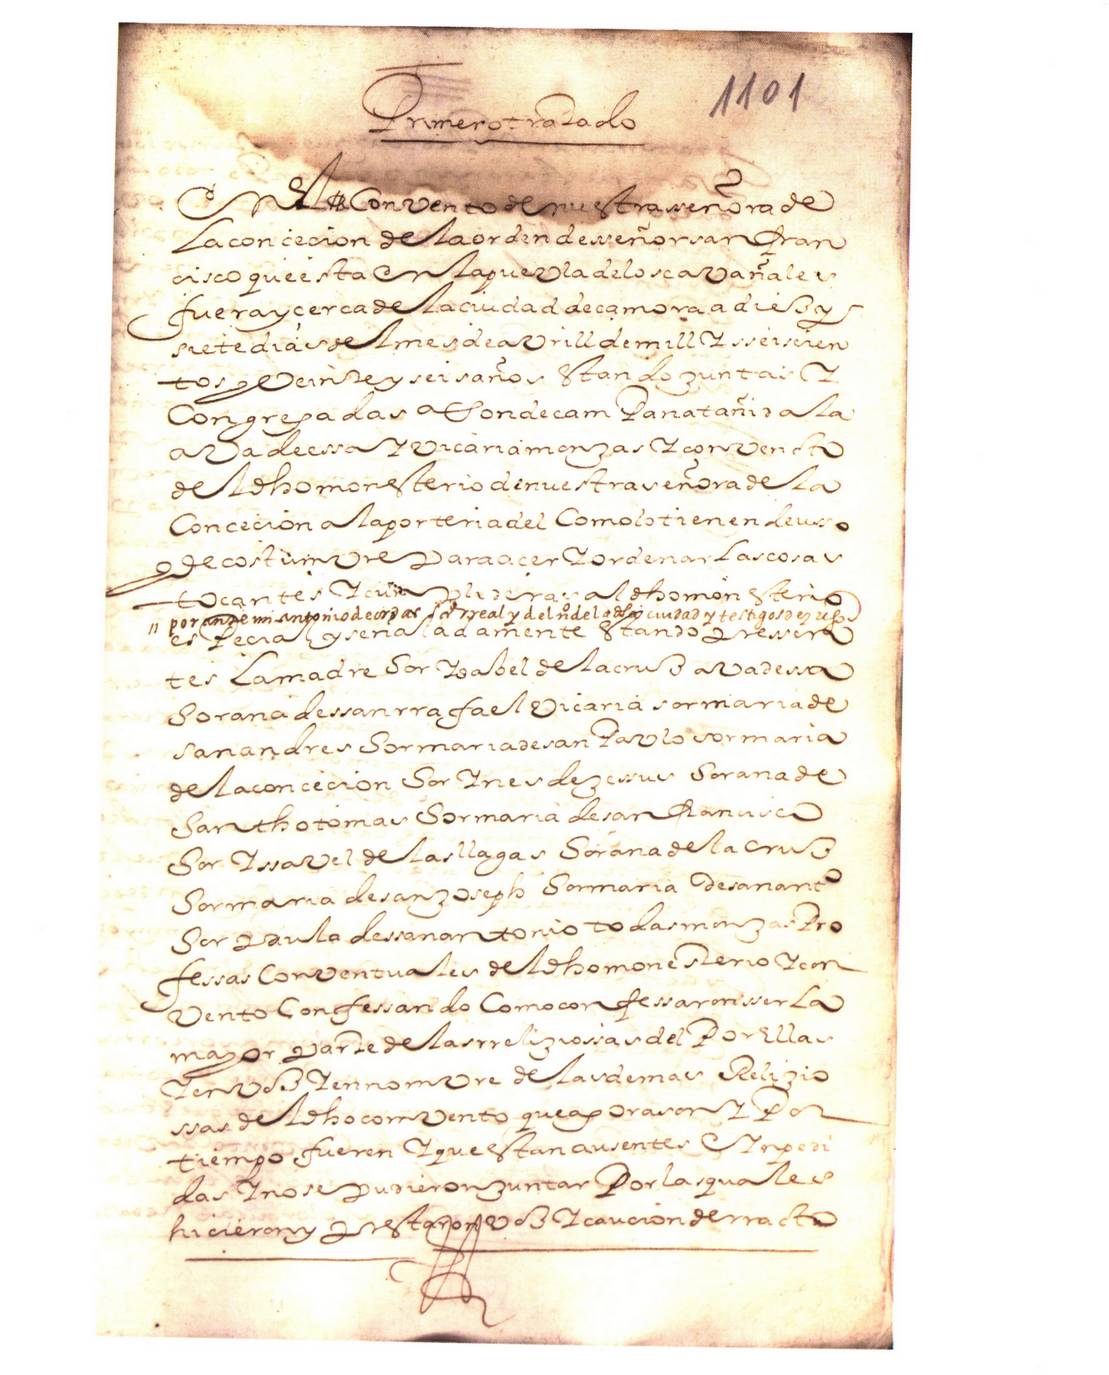 1101
Primero tratado
En El Convento de nuestra señora de
La concecion de la orden de señor san fran
cisco que esta En la puevla de los cavañales
fuera y cerca de la ciudad de camora a dieß y
siete dias del mes de avrill de mill Y sseiscien
tos y Veinte y seis años Estando zuntas Y
Congregadas a son de campana tañida la
avadessa Y vicaria monzas Y convento
del dho monesterio de nuestra señora de la
Concecion a la porteria del Como lo tienen de usso
y de costumvre Para acer Y ordenar Las cosas
tocantes Y cumplideras al dho monesterio
por ante mi antonio de scrº rreal y del nº de la dha ciudad y testigos
especial y señaladamente Estando presen
tes La madre Sor Ysabel de la cruß avadessa
Sor ana de ssan rrafael Vicaria sor maria de
san andres Sor maria de san Pavlo sor maria
de la concecion Sor Ynes de zessus Sor ana de
Santho tomas Sor maria de san francisco
Sor Yssavel de las llagas Sor ana de la cruß
Sor maria de san zoseph Sor maria de san antº
Sor paula de ssan antonio todas monzas Pro
fessas Conventuales del dho monesterio Y con
vento Confessando Como confessaron sser La
mayor parte de las rrelizossas del Por Ellas
Y en voß Y en nomvre de las demas Relizio
ssas del dho convento que aora son Y Por
tiempo fueren Y que Estan ausentes E Ynpedi
das Y no se pudieron zuntar Por las quales
hicieron y prestaron voß Y caucion de rracto